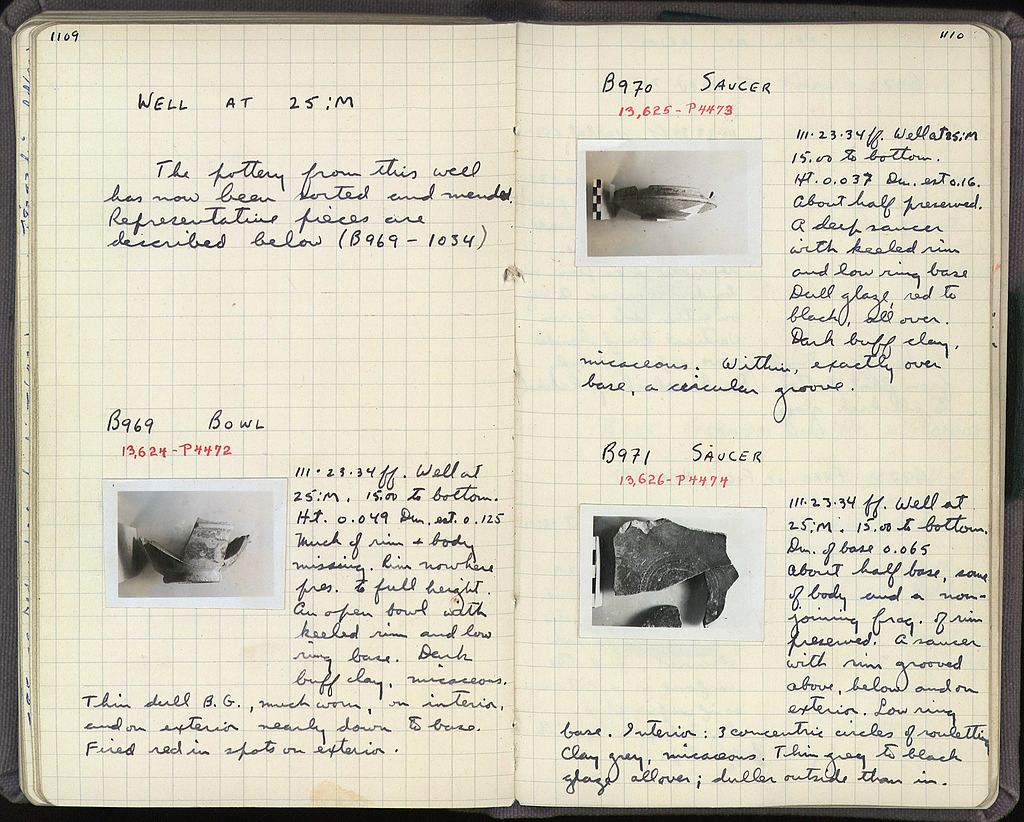 1109
WELL AT 25:M
The pottery from this well
has now been sorted and mended.
Representative pieces are
described below (B969 – 1034)
B969 BOWL
13,624 - P4472
111·23·34 ff. Well at
25:M. 15.00 to bottom.
Ht. 0.049 Dm. est. 0.125
Much of rim + body
missing. Rim nowhere
pres. to full height.
An open bowl with
keeled rim and low
ring base. Dark
buff clay, micaceous.
Thin dull B.G., much worn, on interior,
and on exterior nearly down to base.
Fired red in spots on exterior.
1110
B970 SAUCER
13,625 - P4473
111·23·34 ff. Well at 25:M
15.00 to bottom.
Ht. 0.037 Dm. est 0.16.
About half preserved.
A deep saucer
with keeled rim
and low ring base
Dull glaze, red to
black, all over.
Dark buff clay,
micaceous. Within, exactly over
base, a circular groove.
B971 SAUCER
13,626 - P4474
111·23·34 ff. Well at
25:M. 15.00 to bottom.
Dm. of base 0.065
About half base, some
of body and a non-
joining frag. of rim
preserved. A saucer
with rim grooved
above, below and on
exterior. Low ring
base. Interior: 3 concentric circles of rouletting
Clay grey, micaceous. Thin grey to black
glaze all over; duller outside than in.